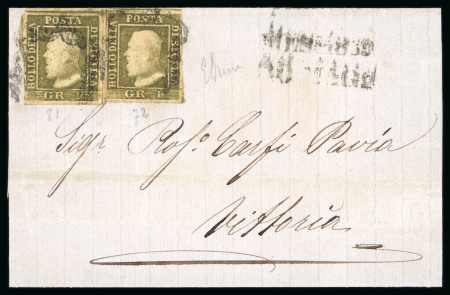 POSTA POSTA
BOLLO DELLA DI SICILIA BOLLO DELLA DI SICILIA
GR. 1 GR. 1
81 72
Sigr Rosº Carfi Pavia
Vittoria